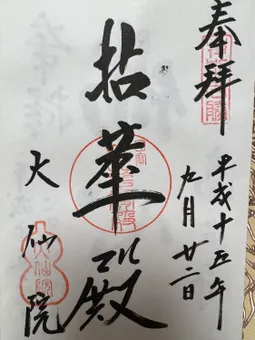 奉拝
平成十五年
九月廿二日
拈華殿
大仙院